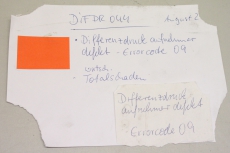 DiFDR 044
• Differenzdruckaufnehmer
defekt - Errorcode 09
• Totalschaden
Differenzdruck
aufnehmer defekt
Errorcode 09